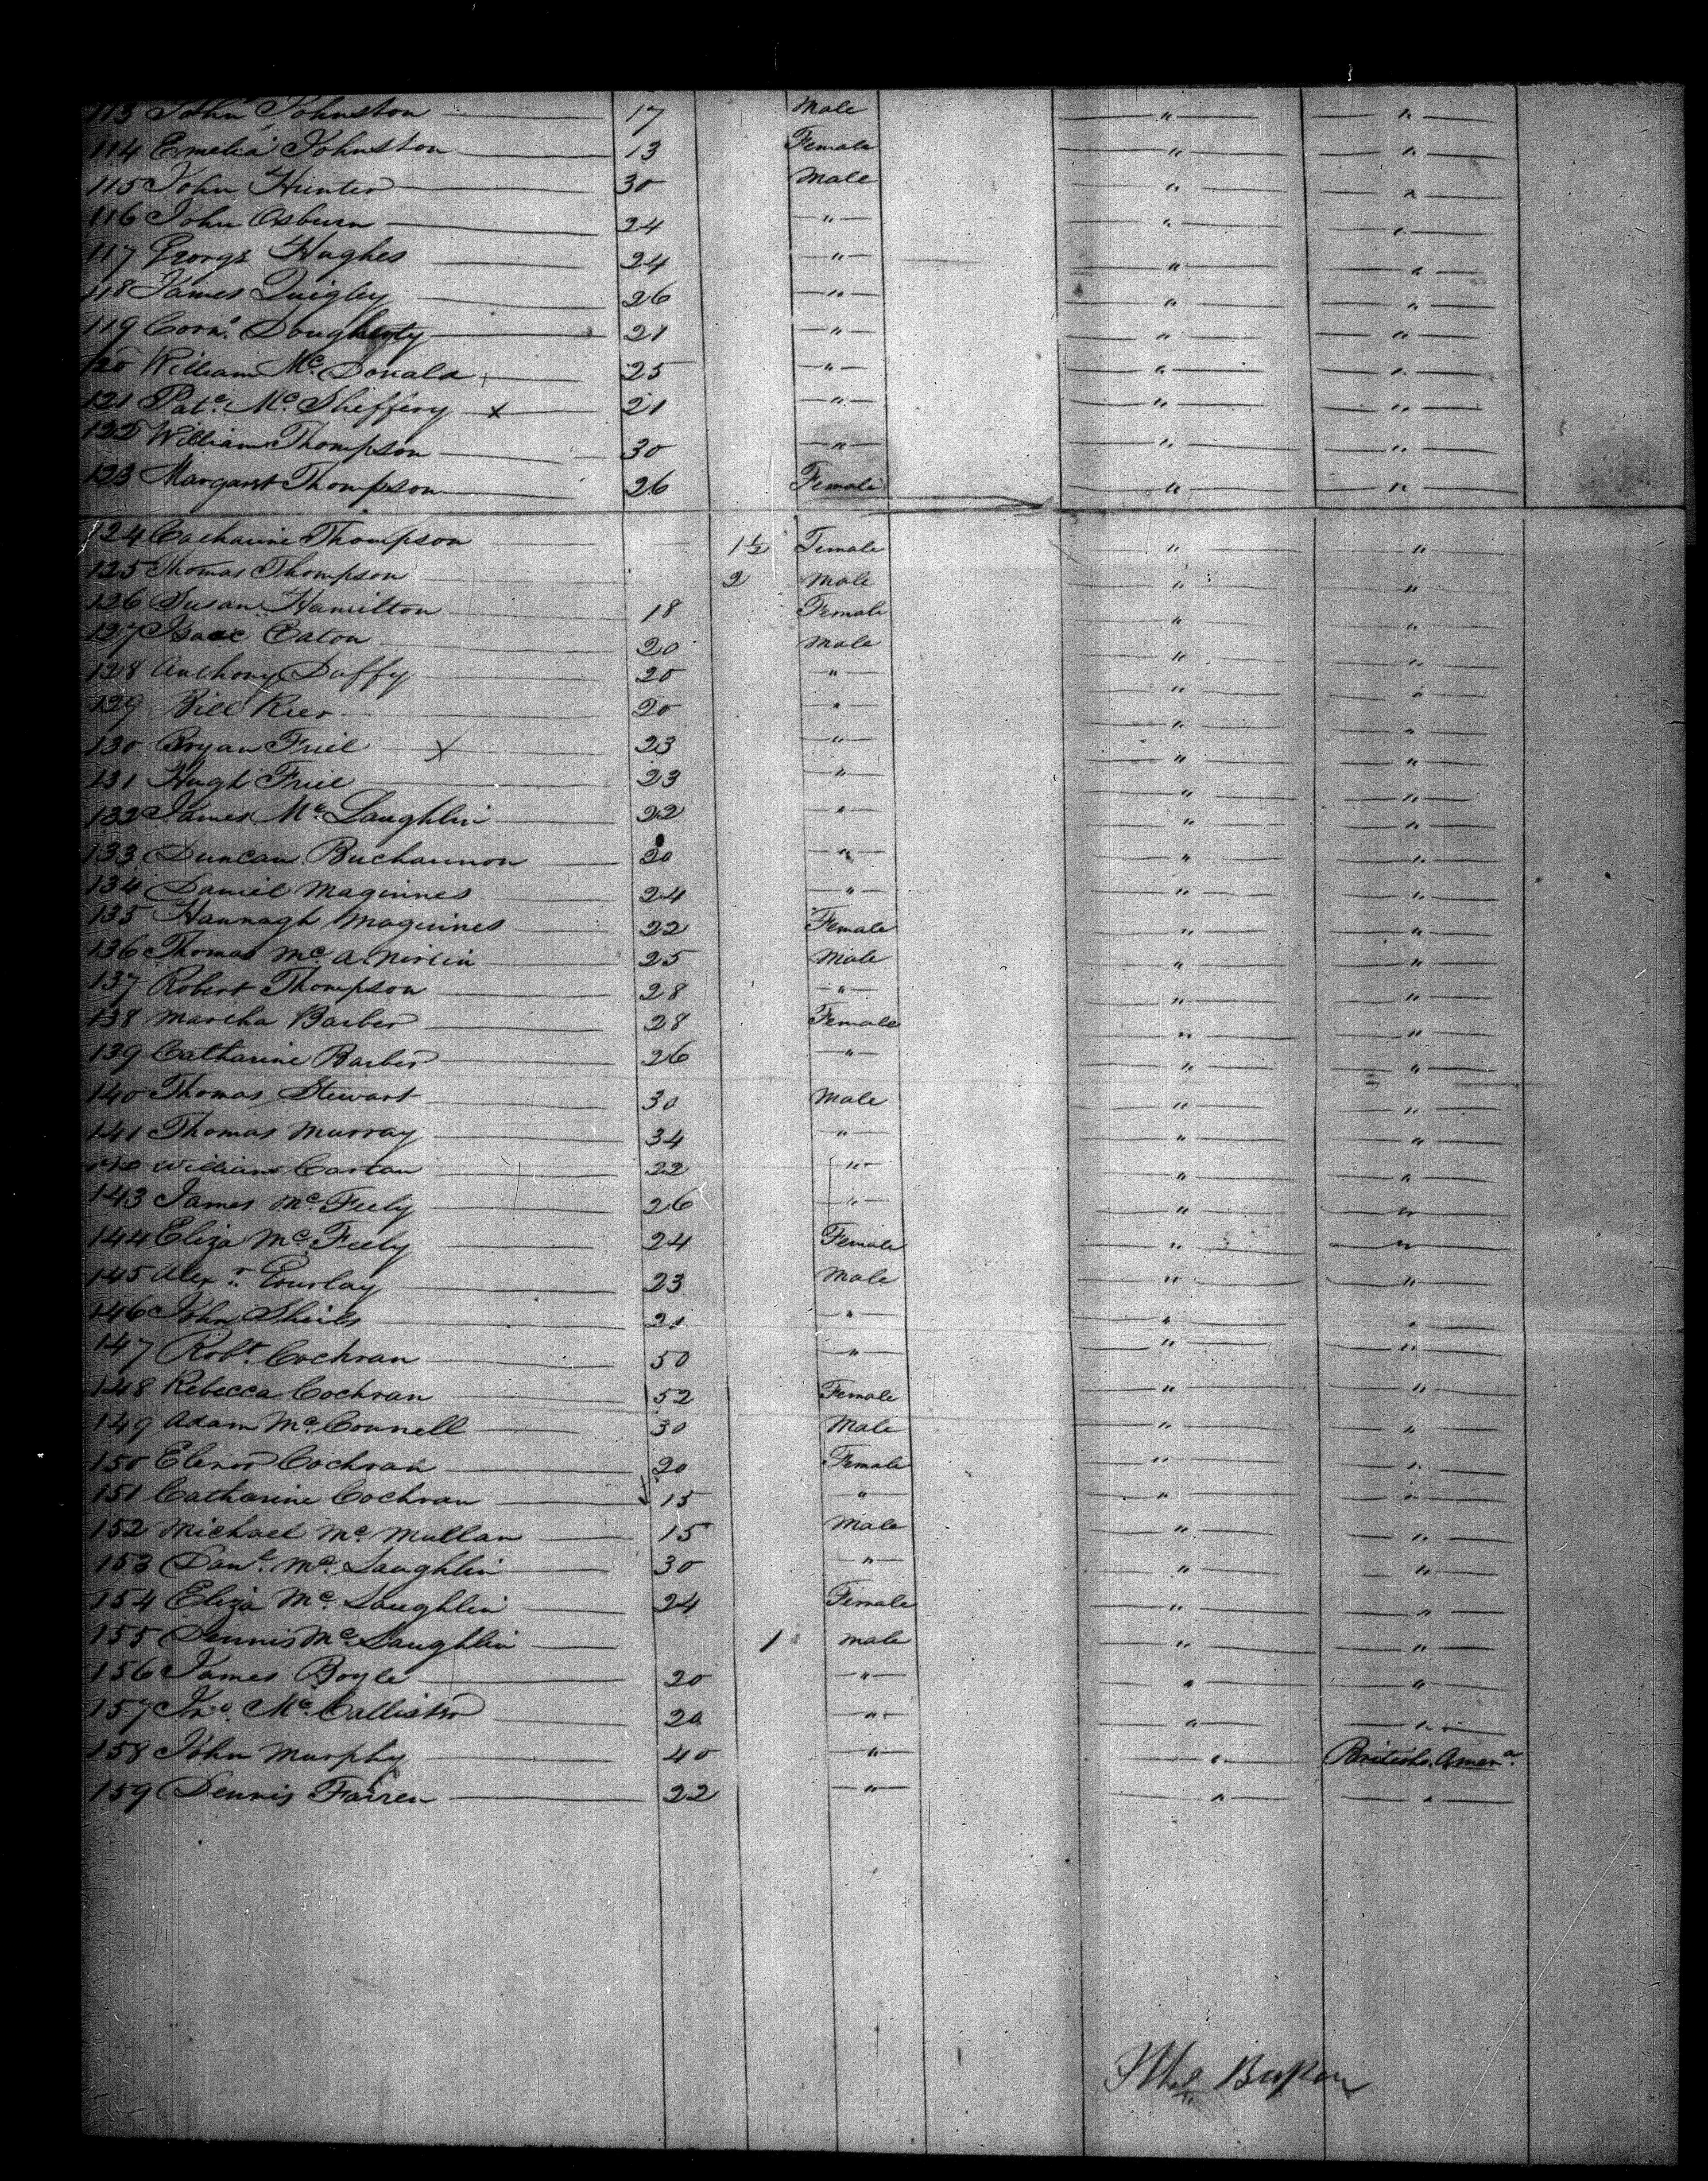 113 John Johnston 17 Male " "
114 Emelia Johnston 13 Female " "
115 John Hunter 30 Male " "
116 John Osburn 24 " " "
117 George Hughes 24 " " "
118 James Quigley 26 " " "
119 Corns. Dougherty 21 " " "
120 William Mc. Donald 25 " " "
121 Pat. Mc. Sheffery x 21 " " "
122 William Thompson 30 " " "
123 Margaret Thompson 26 Female " "
124 Catharine Thompson 1½ Female " "
125 Thomas Thompson 2 Male " "
126 Susan Hamilton 18 Female " "
127 Isaac Eaton 20 Male " "
128 Anthony Duffy 20 " " "
129 Bill 20 " " "
130 Bryan Friel x 23 " " "
131 Hugh Friel 23 " " "
132 James Mc. Laughlin 22 " " "
133 Duncan Buchannon 20 " " "
134 Daniel Maguines 24 " " "
135 Hannagh Maguines 22 Female " "
136 Thomas Mc. 25 Male " "
137 Robert Thompson 28 " " "
138 Martha Barber 28 Female " "
139 Catharine Barber 26 " " "
140 Thomas Stewart 30 Male " "
141 Thomas Murray 34 " " "
William Cartan 22 " " "
143 James Mc. Feely 26 " " "
144 Eliza Mc. Feely 24 Female " "
145 Alexr. Gourlay 23 Male " "
146 John Sheils 21 " " "
147 Robt. Cochran 50 " " "
148 Rebecca Cochran 52 Female " "
149 Adam Mc. Connell 30 Male " "
150 Elenor Cochran 20 Female " "
151 Catharine Cochran 15 " " "
152 Michael Mc. Mullan 15 Male " "
153 Danl. Mc. Laughlin 30 " " "
154 Eliza Mc. Laughlin 24 Female " "
155 Dennis Mc. Laughlin 1 Male " "
156 James Boyle 20 " " "
157 Jno. Mc. Callister 20 " " "
158 John Murphy 40 " " British Amera.
159 Dennis Farren 22 " " "